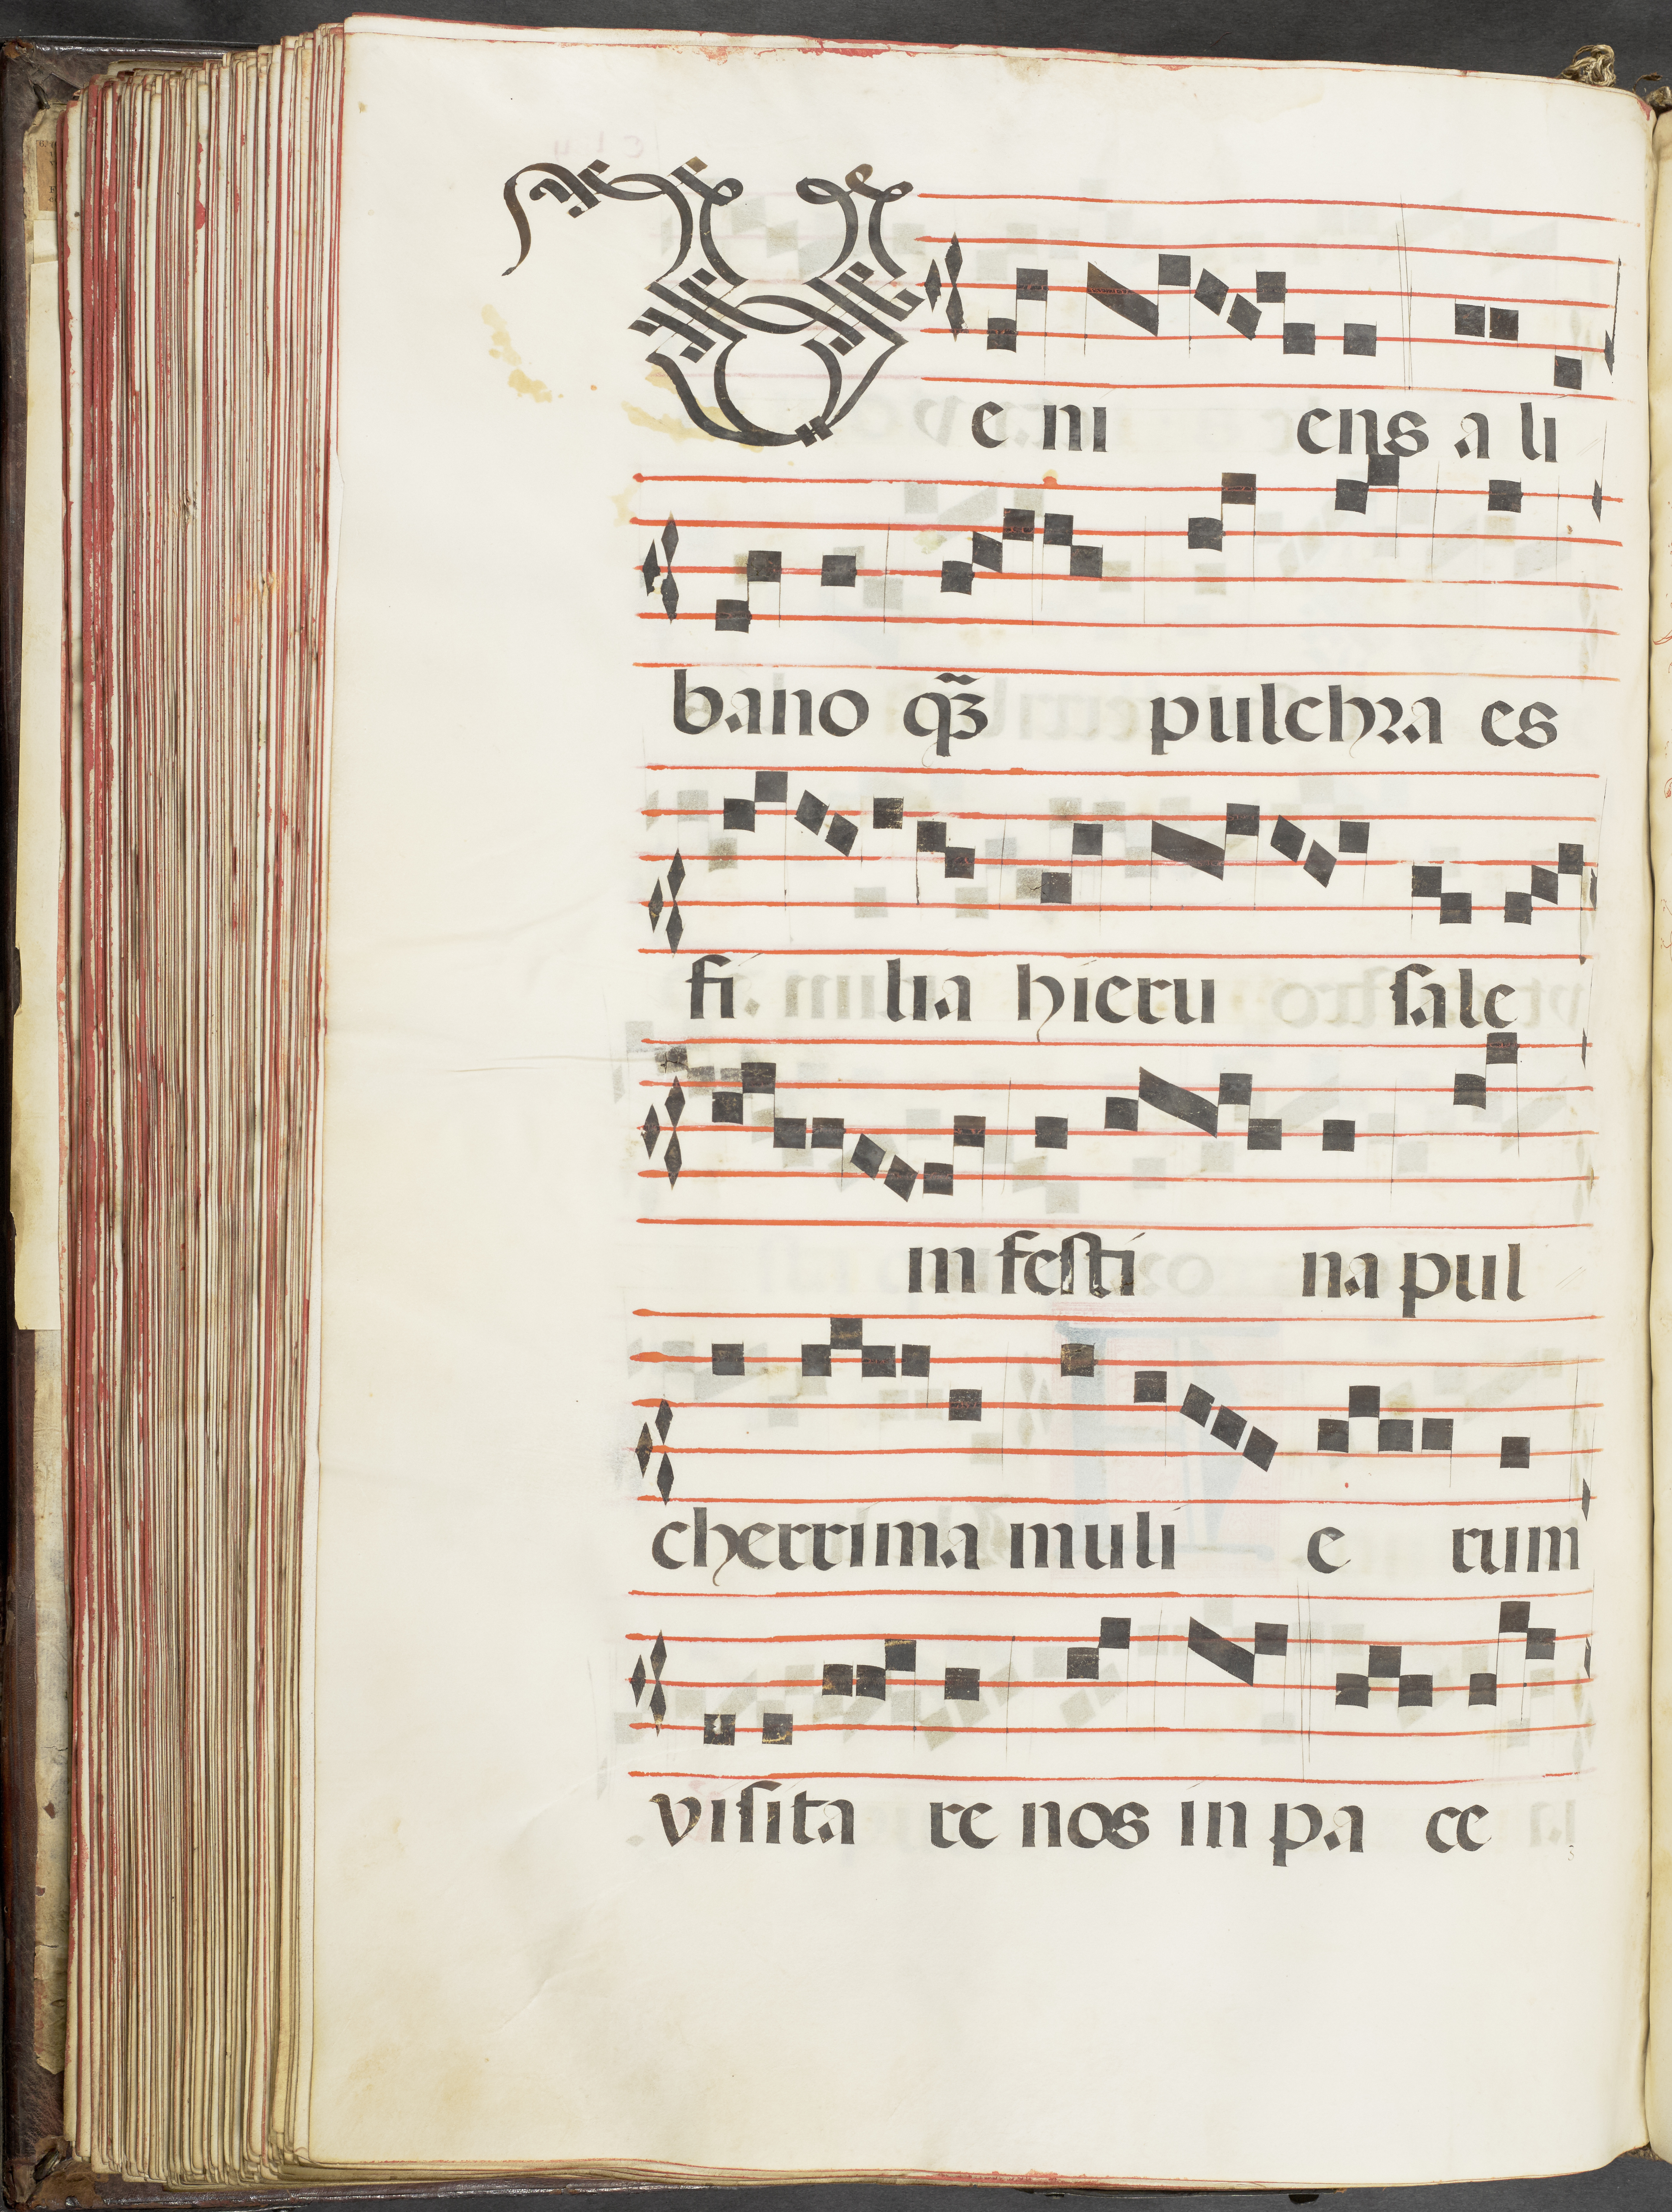 Ve ni ens a li
bano qȝ̃ pulchra es
fi lia hieru sale
m festi na pul
cherrima muli e rum
visita re nos in pa ce